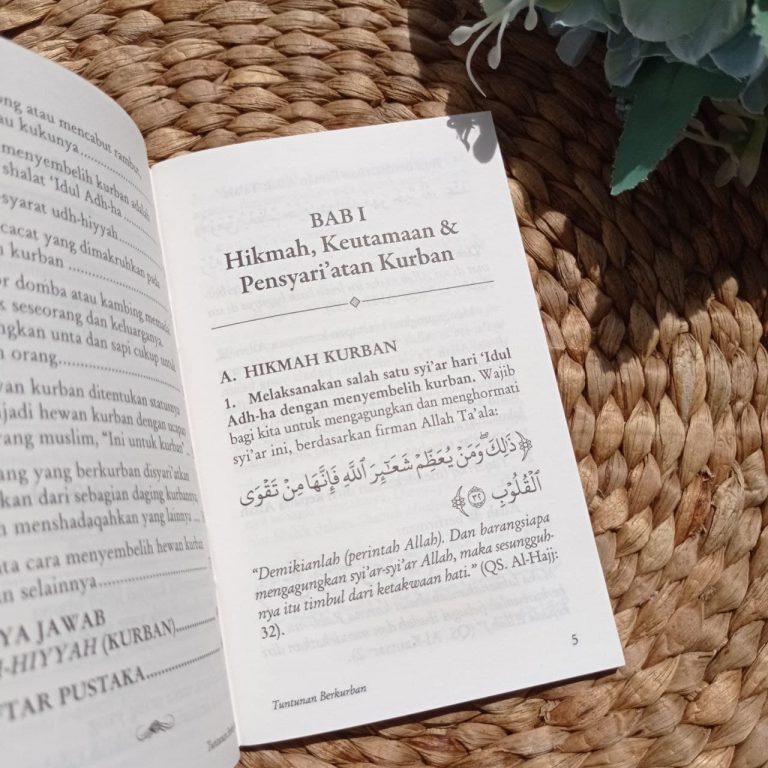 ong atau mencabut rambut,
au kukunya
menyembelih kurban adalah
shalat 'Idul Adh-ha
syarat udh-hiyyah
cacat yang dimakruhkan pada
n kurban
or domba atau kambing memadai
k seseorang dan keluarganya.
ngkan unta dan sapi cukup untuk
h orang
wan kurban ditentukan statusnya
njadi hewan kurban dengan ucapan
rang muslim, "Ini untuk kurban"
ang yang berkurban disyari'atkan
kan dari sebagian daging kurbannya
n menshadaqahkan yang lainnya
ata cara menyembelih hewan kurban
an selainnya
YA JAWAB
H-HIYYAH (KURBAN)
TAR PUSTAKA
BAB I
Hikmah, Keutamaan &
Pensyari'atan Kurban
A. HIKMAH KURBAN
1. Melaksanakan salah satu syi'ar hari 'Idul
Adh-ha dengan menyembelih kurban. Wajib
bagi kita untuk mengagungkan dan menghormati
syi'ar ini, berdasarkan firman Allah Ta'ala:
﴿ذَٰلِكَۖ وَمَنْ يُعَظِّمْ شَعَائِرَ اللَّهِ فَإِنَّهَا مِنْ تَقْوَى
الْقُلُوبِ ٣٢﴾
"Demikianlah (perintah Allah). Dan barangsiapa
mengagungkan syi'ar-syi'ar Allah, maka sesungguh-
nya itu timbul dari ketakwaan hati." (QS. Al-Hajj:
32).
5
Tuntunan Berkurban